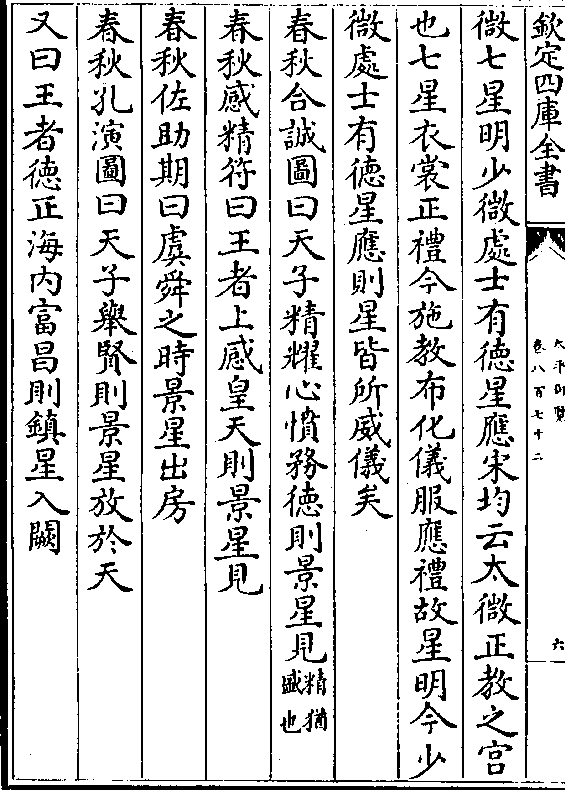 欽定四庫全書
太平御覽
卷八百七十二
六
微七星明少微處士有徳星應宋均云太微正教之宫
也七星衣裳正禮今施教布化儀服應禮故星明今少
微處士有徳星應則星皆所威儀矣
春秋合誠圖曰天子精耀心慣務徳則景星見精猶盛也
春秋感精符曰王者上感皇天則景星見
春秋佐助期曰虞舜之時景星出房
春秋孔演圖曰天子舉賢則景星放於天
又曰王者徳正海内富昌則鎮星入闕